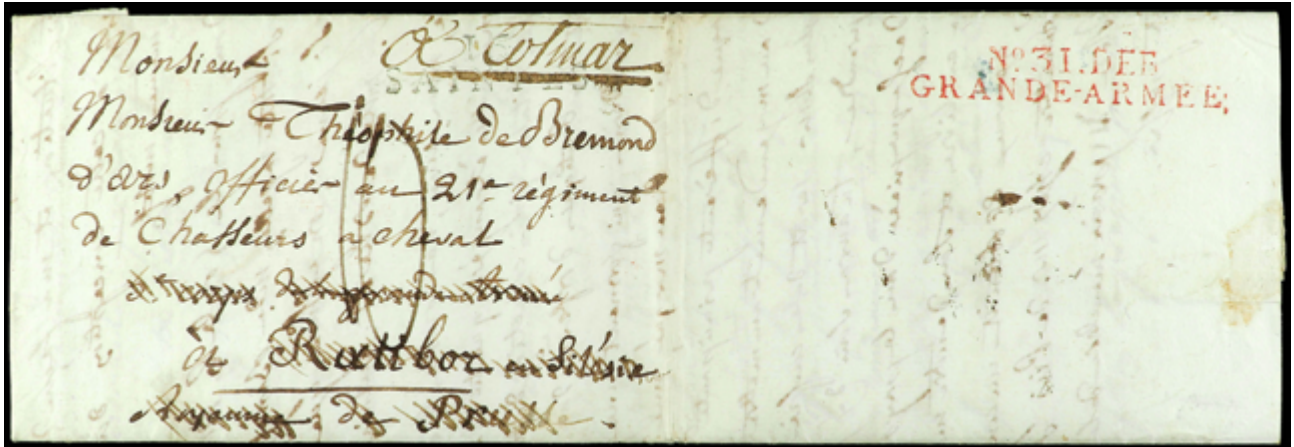 Monsieur
à Colmar
SAINTES
Monsieur Théophile de Bremond
d'ars, officier au 21e régiment
de Chasseurs à cheval
à Rattbor en Silésie
de
No. 31. DEB
GRANDE-ARMEE,